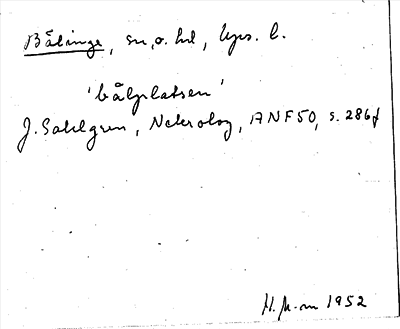 Bälinge, sn, o. hd, Upps. l.
'bålplatsen'
J. Sahlgren, Nekrolog, ANF 50, s. 286 f
H. M-m 1952